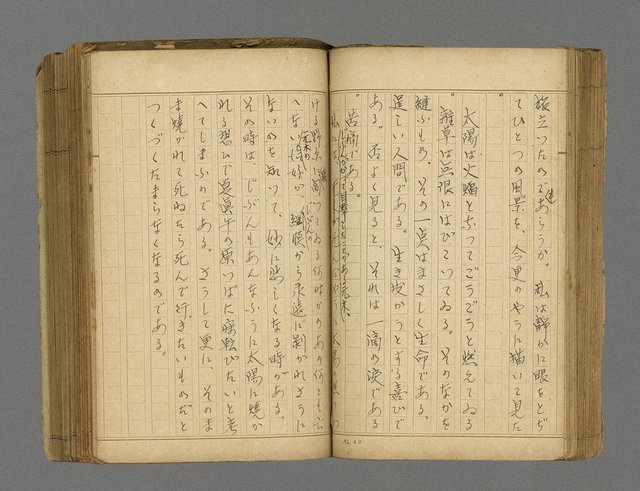 旅立つたのであらうか。私は靜かに眼をとぢ
てひとつの風景を、今更のやうに描いて見た
。
太陽は火焔となつてごうごうと燃えてゐる
。雜草は無限にはびこつてゐる。そのなかを
縫ふもの、その一点はまさしく生命である。
逞しい人間である。生き拔かうとする喜びで
ある。否よく見ると、それは一滴の涙である
苦痛である。
ける野原に
へない恰好が、細胞から永遠に剝がれさうに
ないのを知いて、妙に悲しくなる時がある。
その時は、じぶんもあんなふうに太陽に燒か
れる思ひで夏眞午の原つぱに寢転びたいと考
へてしまふのである。さうして更に、そのま
ま燒かれて死ねたら死んで行きたいものだと
つくづくたまらなくなるのである。
No. 40